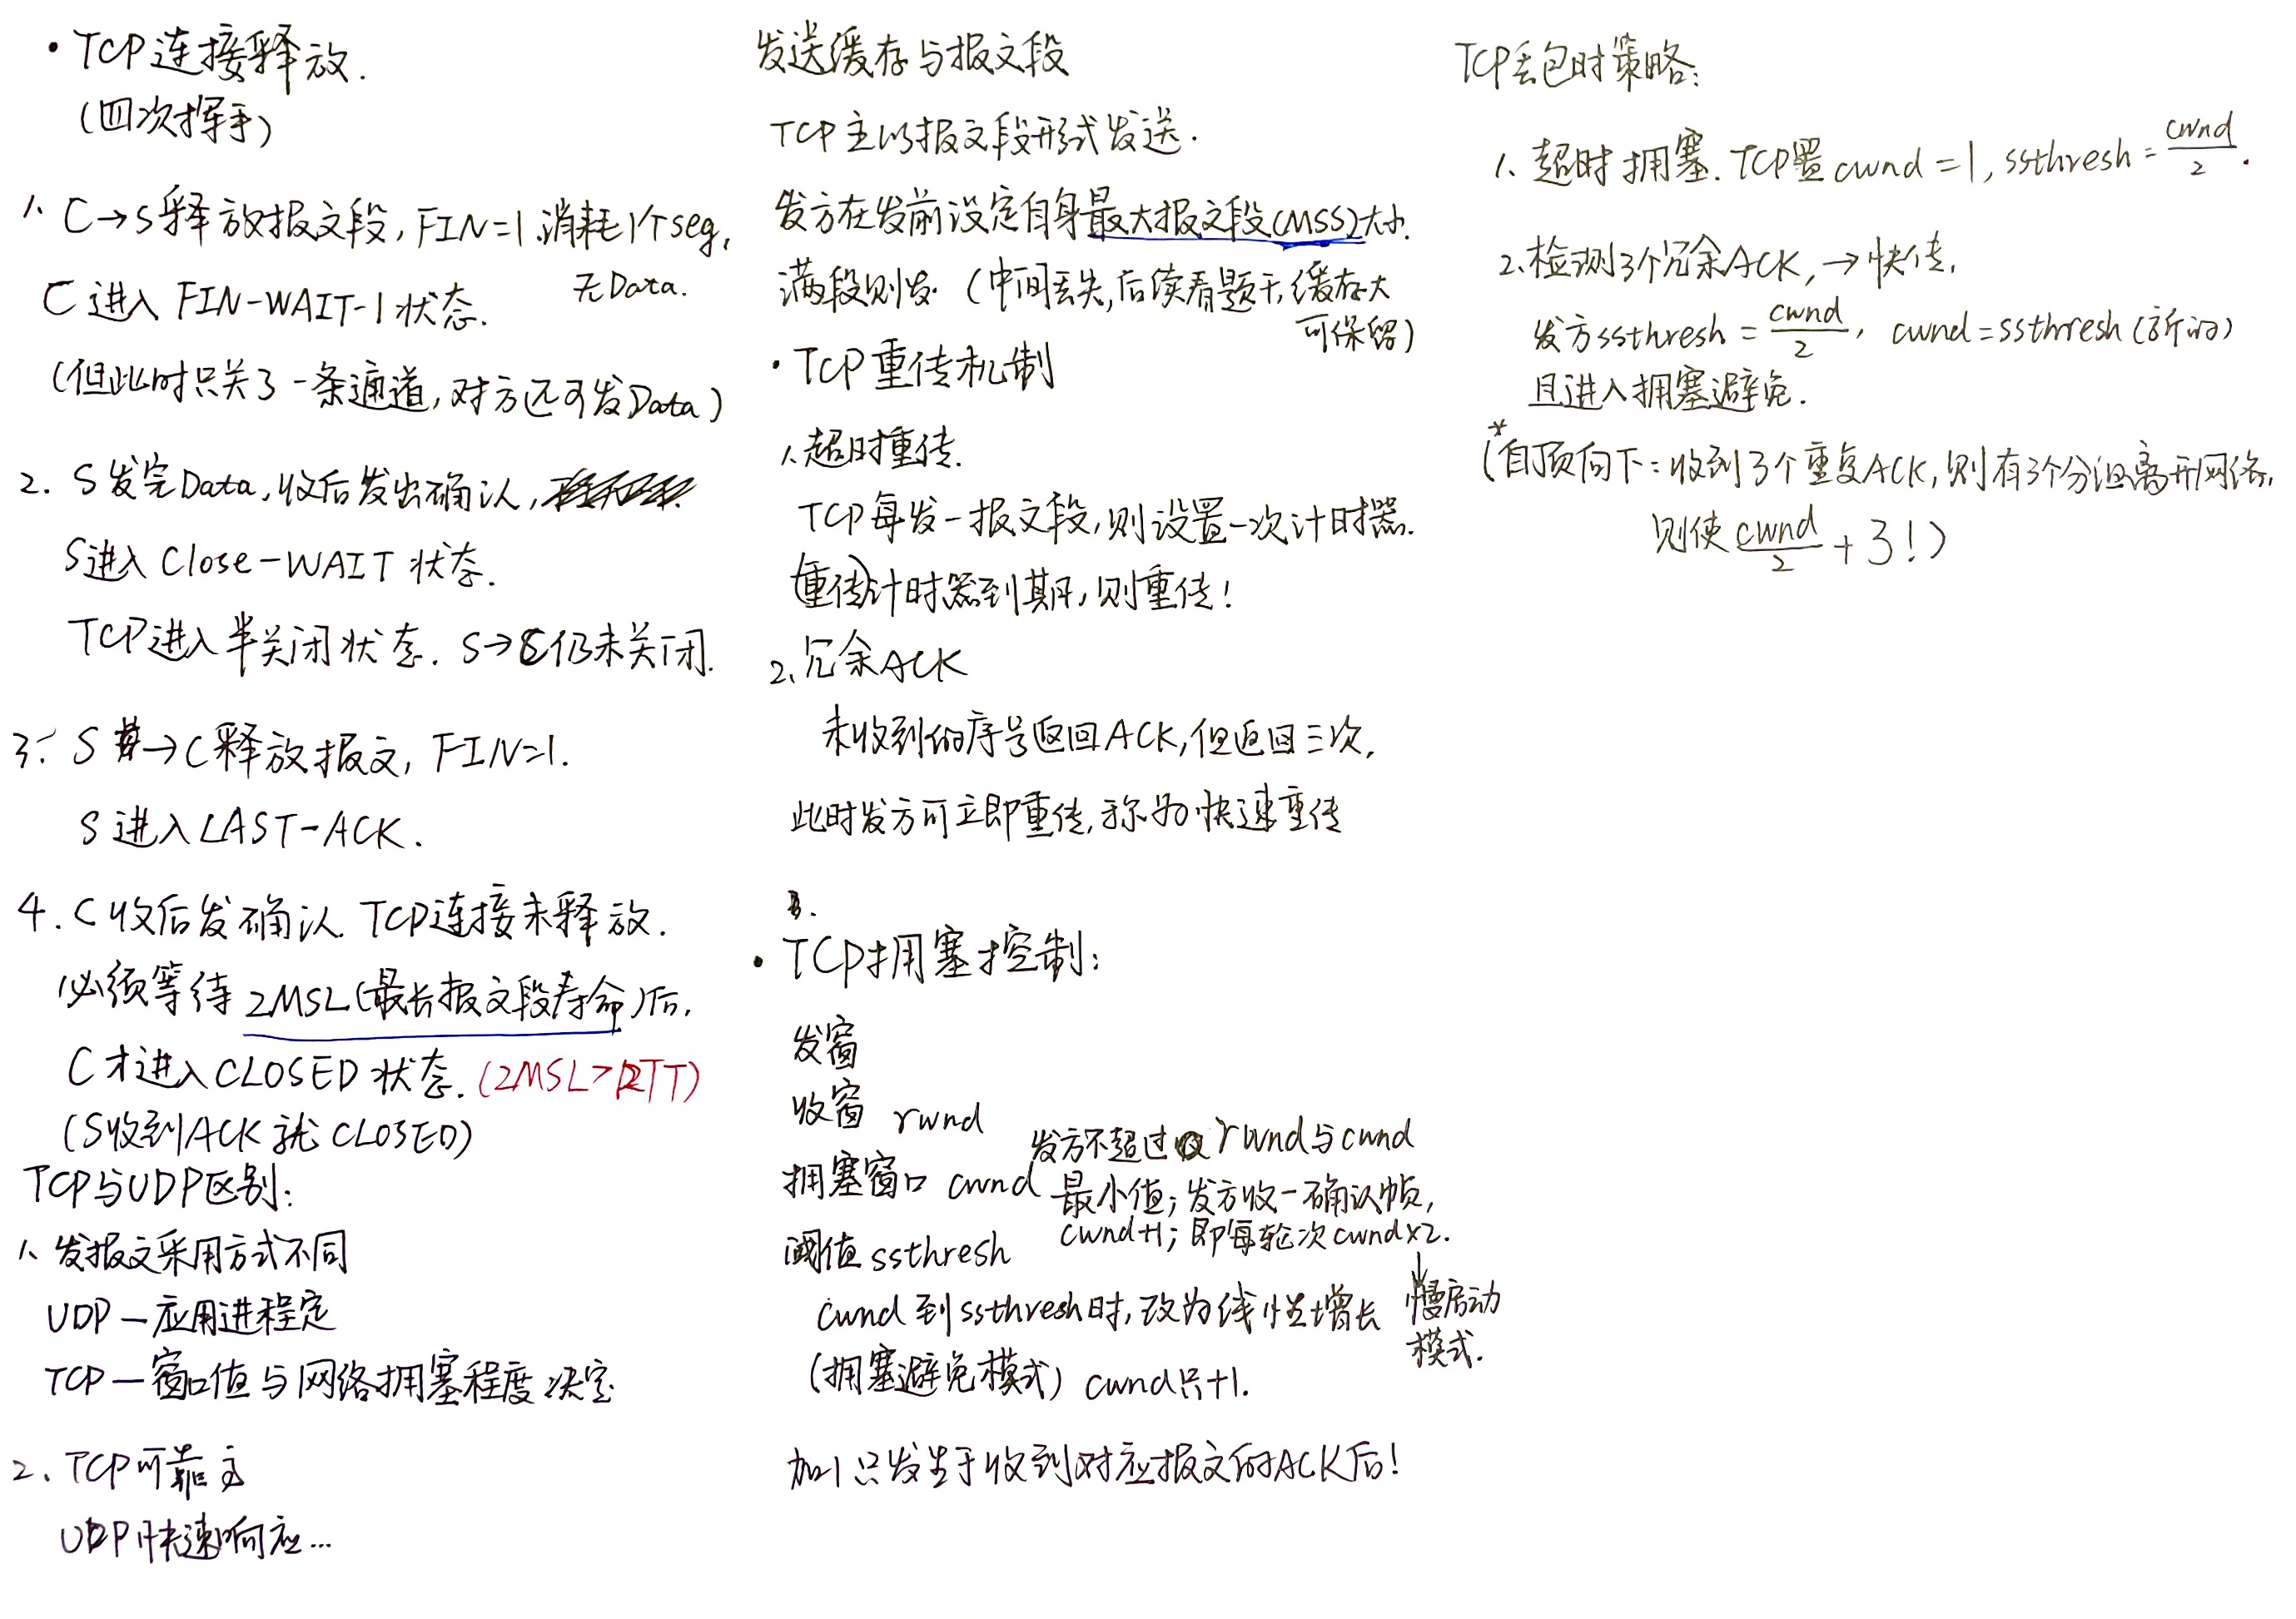 · TCP连接释放.
(四次挥手)
1、C→S释放报文段,FIN=1.消耗1个seg,
无Data.
C进入 FIN-WAIT-1状态.
(但此时只关了一条通道,对方还可发Data)
2. S发完Data,收后发出确认,
S进入 Close-WAIT 状态.
TCP进入半关闭状态. S→C仍未关闭.
3. S→C释放报文, FIN=1.
S进入LAST-ACK.
4. C收后发确认. TCP连接未释放.
必须等待 2MSL(最长报文段寿命)后,
C才进入CLOSED状态. (2MSL>RTT)
(S收到ACK就CLOSED)
TCP与UDP区别:
1、发报文采用方式不同
UDP—应用进程定
TCP—窗口值与网络拥塞程度决定
2、TCP可靠主
UDP快速响应...
发送缓存与报文段
TCP主以报文段形式发送.
发方在发前设定自身最大报文段(MSS)大小.
满段则发. (中间丢失,后续看题干,缓存大
可保留)
· TCP重传机制
1、超时重传.
TCP每发一报文段,则设置一次计时器.
(重传)计时器到期,则重传!
2、冗余ACK
未收到的序号返回ACK,但返回三次,
此时发方可立即重传,称为快速重传
3.
· TCP拥塞控制:
发窗
收窗 rwnd
拥塞窗口 cwnd
阈值ssthresh
发方不超过rwnd与cwnd
最小值;发方收一确认帧,
cwnd+1;即每轮次cwnd×2.
↓
慢启动
模式.
cwnd到ssthresh时,改为线性增长
(拥塞避免模式) cwnd只+1.
加1只发生于收到对应报文的ACK后!
TCP丢包时策略:
1、超时拥塞. TCP置cwnd=1, ssthresh=cwnd/2.
2、检测3个冗余ACK,→快传,
发方ssthresh=cwnd/2, cwnd=ssthresh(新的)
且进入拥塞避免.
*(自顶向下:收到3个重复ACK,则有3个分组离开网络,
则使cwnd/2+3!)